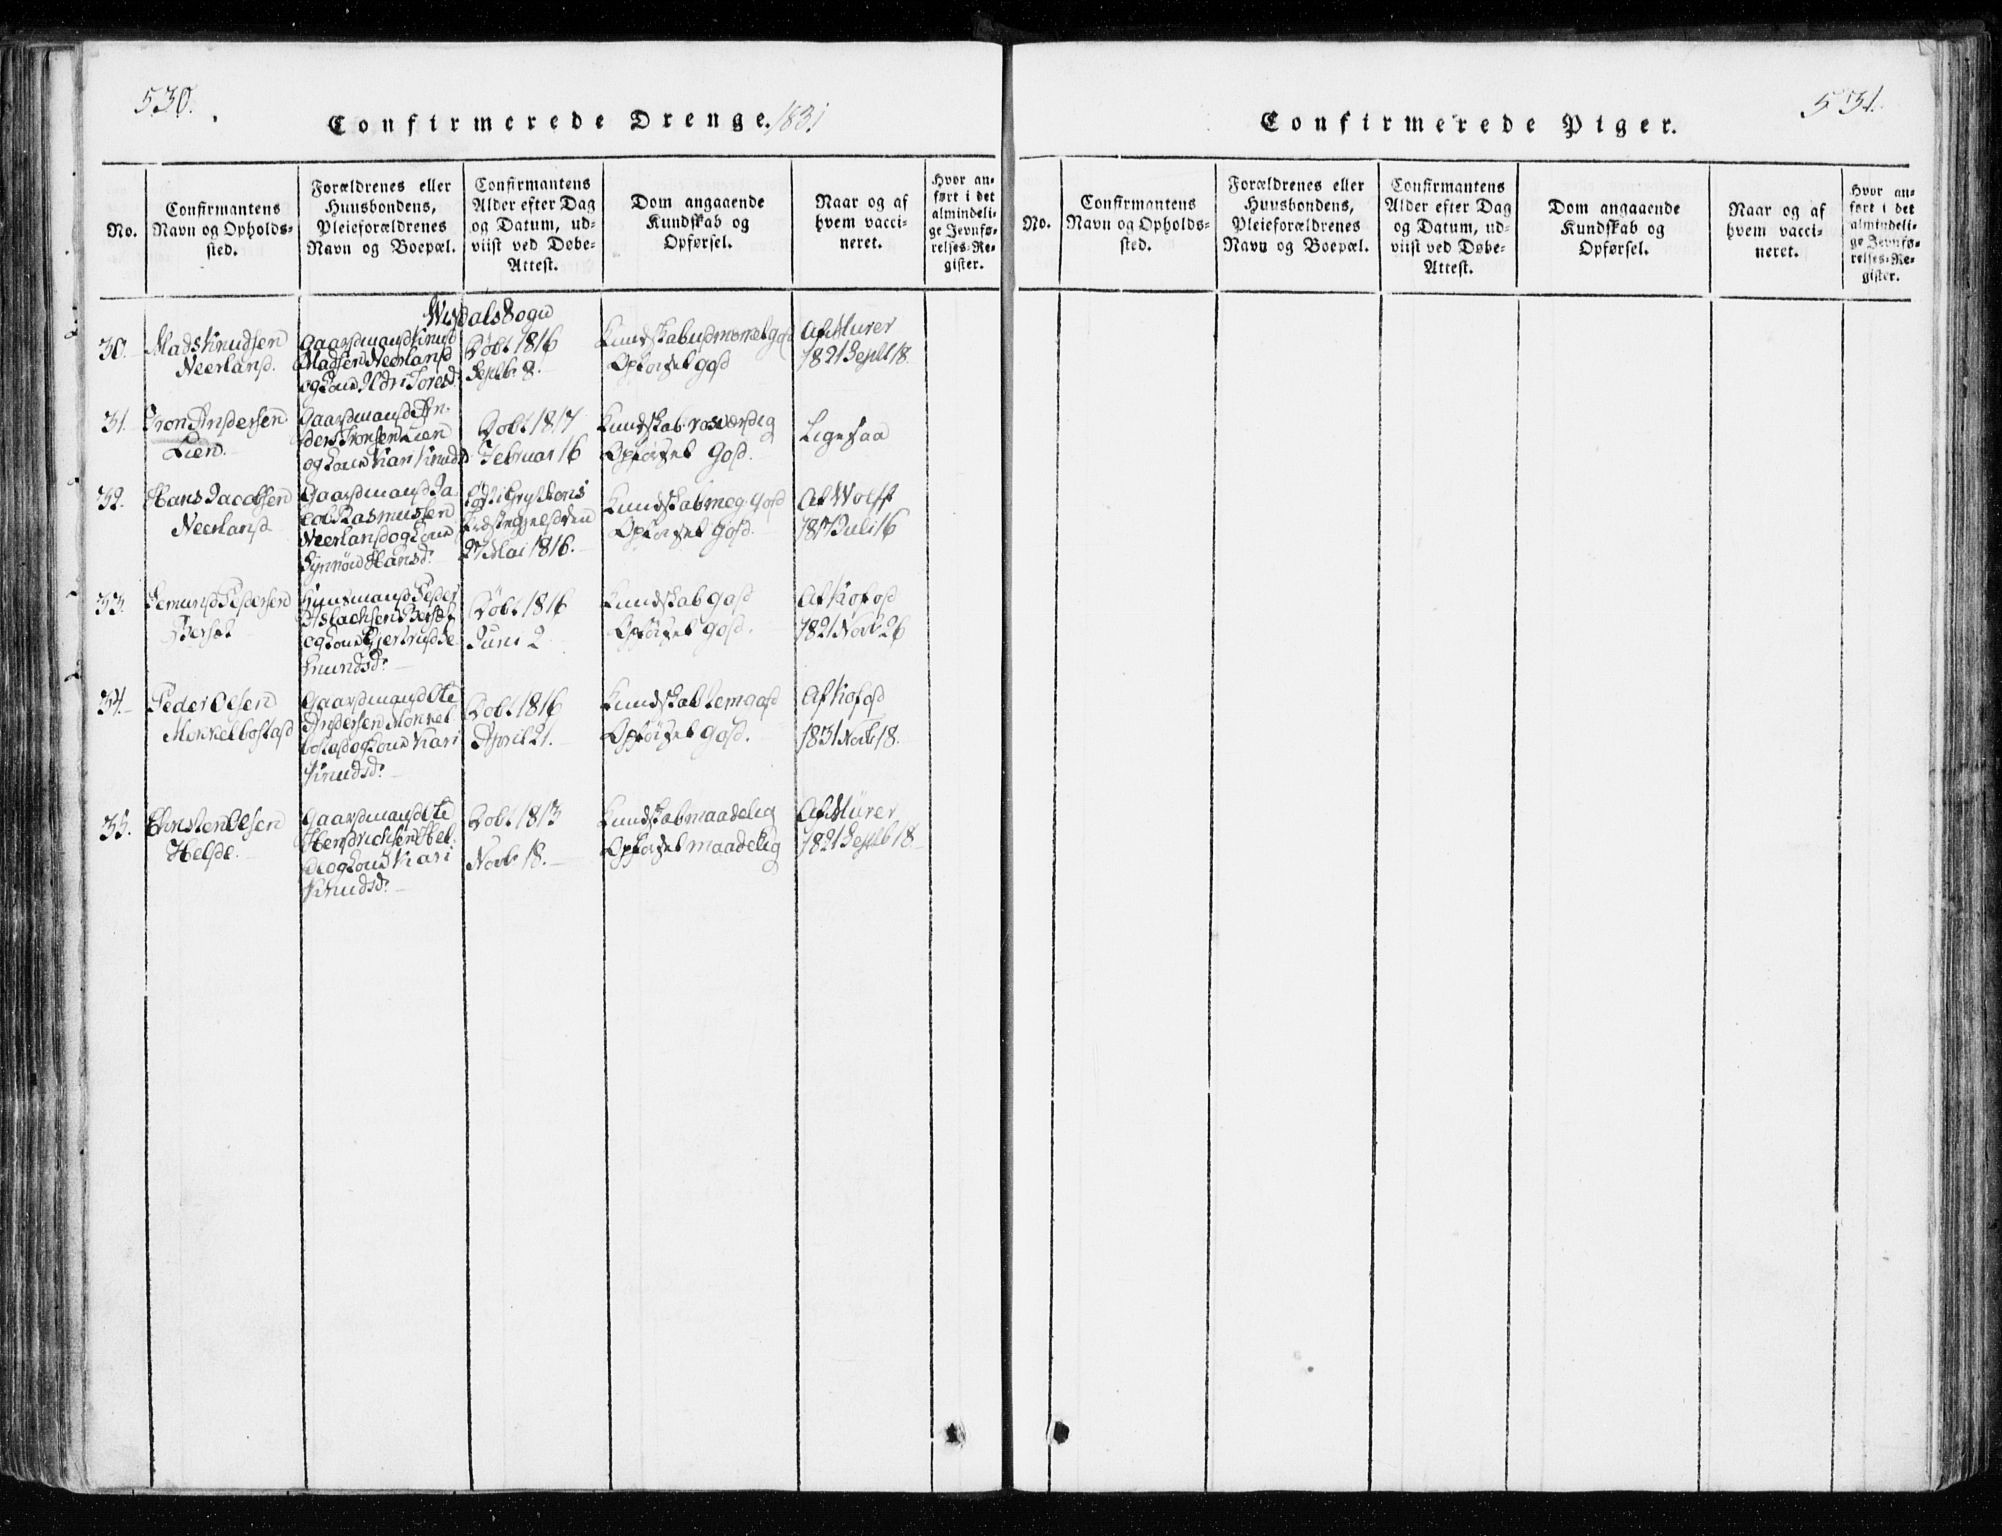 530.
Confirmerede Drenge. 1831
No.
Confirmantens
Navn og Opholds-
sted.
Forældrenes eller
Huusbondens,
Pleieforældrenes
Navn og Boepæl.
Confirmantens
Alder efter Dag
og Datum, ud-
viist ved Døbe-
Attest.
Dom angaaende
Kundskab og
Opførsel.
Naar og af
hvem vacci-
neret.
Hvor an-
ført i det
almindeli-
ge Jevnfø-
relses-Re-
gister.
30.
Mads Knudsen
Neerland.
Gaardmand Knud
Madsen Neerland
og Kone
Døbt 1816
Septbr 8.
Kundskab udmærket god
Opførsel god
Af Mürer
1821 Septb 18.
31.
Tron Andersen
Lien.
Gaardmand An-
ders Tronsen Lien
og Kone Kari Knudsd
Døbt 1817
Februar 16
Kundskab roesværdig
Opførsel God.
Ligesaa
32.
Hans Jacobsen
Neerland
Gaardmand Ja-
cob Rasmussen
Neerland og Kone
Synnøv Hansd.
Gryttens
den
27 Mai 1816.
Kundskab meg. God
Opførsel God.
Af Wolff
1817 Juli 16
33.
Pedersen
Berset
Huusmand Peder
Aslachsen Berset
og Kone Gjertrud
Døbt 1816
Juni 2
Kundskab God
Opførsel God.
Af Kofod
1821 Novbr 26
34.
Peder Olsen
Mikkelbostad
Gaardmand Ole
Andersen Mikkel
bostad og Kone Kari
Knudsd.
Døbt 1816
April 21.
Kundskab temm god
Opførsel God.
Af Kofod
1831 Novb 18.
35.
Christen Olsen
Helde.
Gaardmand Ole
Hendrichsen Hel-
de og Kone Kari
Knudsd.
Døbt 1813
Novbr 18.
Kundskab maadelig
Opførsel maadelig
Af Mürer
1821 Septb 18
531.
Confirmerede Piger.
No.
Confirmantens
Navn og Opholds-
sted.
Forældrenes eller
Huusbondens,
Pleieforældrenes
Navn og Boepæl.
Confirmantens
Alder efter Dag
og Datum, ud-
viist ved Døbe-
Attest.
Dom angaaende
Kundskab og
Opførsel.
Naar og af
hvem vacci-
neret.
Hvor an-
ført i det
almindeli-
ge Jevnfø-
relses-Re-
gister.